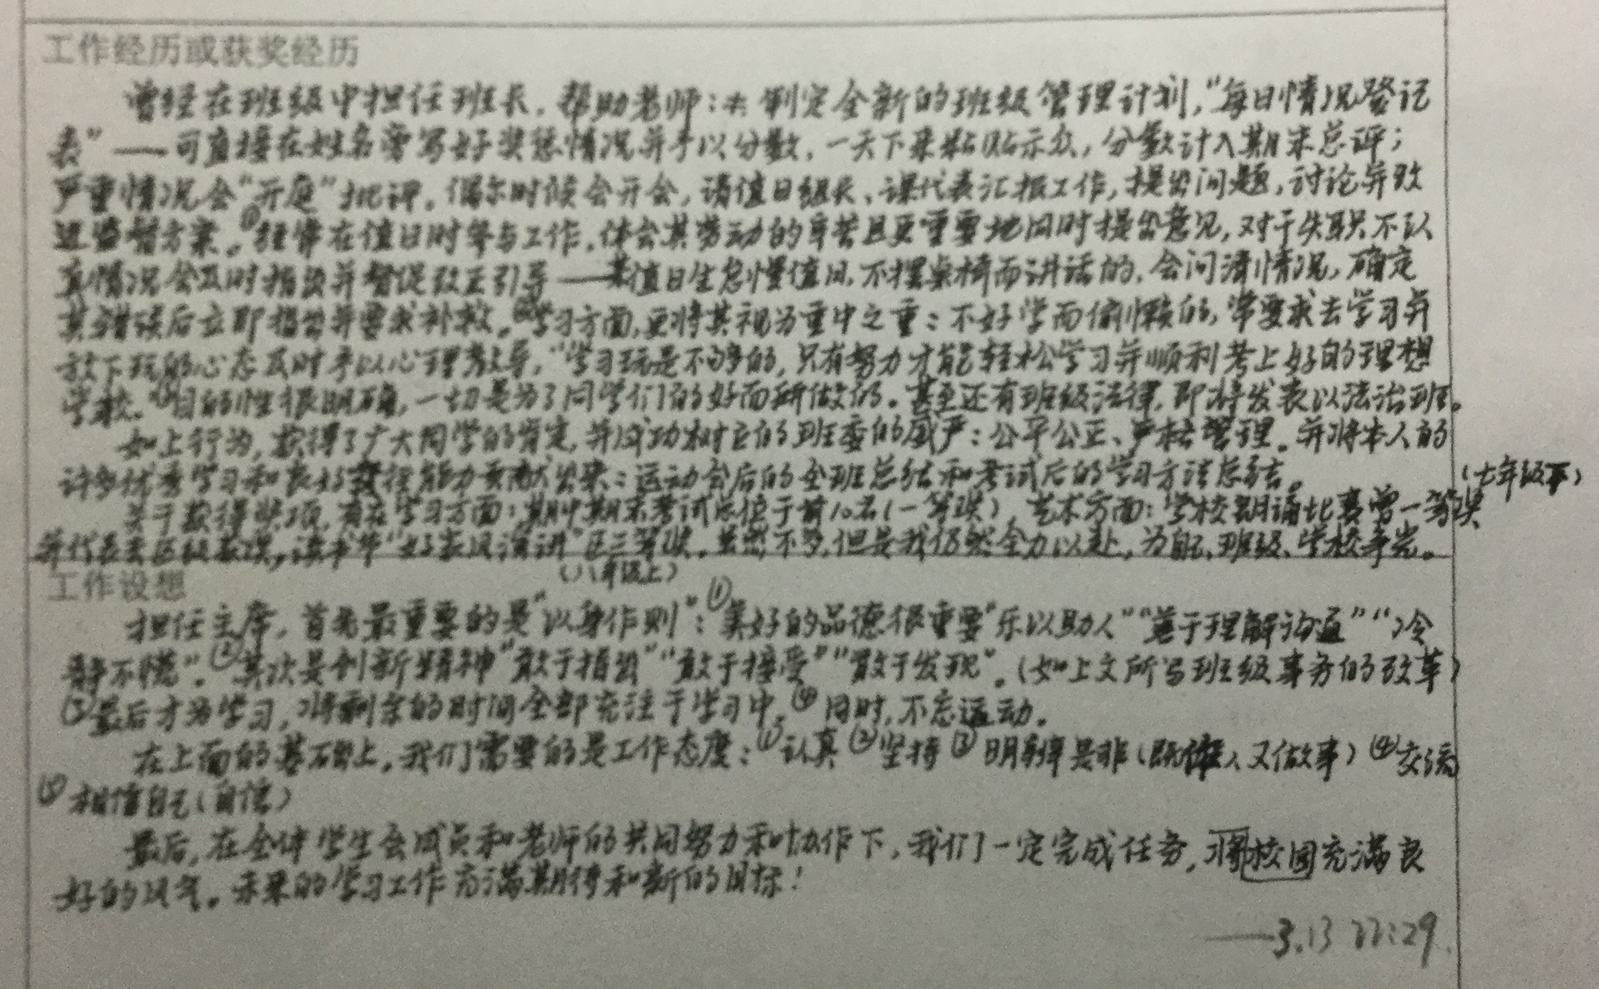 工作经历或获奖经历
曾经在班级中担任班长,帮助老师:制定全新的班级管理计划,"每日情况登记
表"——可直接在姓名旁写好奖惩情况并予以分数,一天下来粘贴示众,分数计入期末总评;
严重情况会"开庭"批评。偶尔时候会开会,请值日组长、课代表汇报工作,提出问题,讨论并改
进监督方案。①经常在值日时参与工作,体会其劳动的辛苦且更重要地同时提出意见,对于失职不认
真情况会及时指出并督促改正引导——某值日生怠慢值日,不摆桌椅而讲话的,会问清情况,确定
其错误后立即指出并要求补救。学习方面,更将其视为重中之重:不好学而偷懒的,常要求去学习并
放下玩的心态及时予以心理教导,"学习玩是不够的,只有努力才能轻松学习并顺利考上好的理想
学校。目的性很明确,一切是为了同学们的好而所做的。甚至还有班级法律,即将发表以法治班。
如上行为,获得了广大同学的肯定,并成功树立的班委的威严:公平公正、严格管理。并将本人的
许多优秀学习和良好能力贡献出来:运动会后的全班总结和考试后的学习方法总结。
(七年级下)
关于获得奖项,有在学习方面:期中期末考试总位于前10名(一等奖),艺术方面:学校朗诵比赛曾一等奖
并代表去区级表演,读书节"好家风演讲"区三等奖。虽然不多,但是我仍然全力以赴,为自己、班级、学校争光。
(八年级上)
工作设想
担任主席,首先最重要的是"以身作则":①美好的品德很重要"乐以助人""善于理解沟通""冷
静不慌"。②其次是创新精神"敢于指出""敢于接受""敢于发现"。(如上文所写班级事务的改革)
③最后才为学习,将剩余的时间全部充注于学习中。④同时,不忘运动。
在上面的基础上,我们需要的是工作态度:①认真②坚持③明辨是非(既做人又做事)④交流
⑤相信自己(自信)
最后,在全体学生会成员和老师的共同努力和协作下,我们一定完成任务,将校园充满良
好的风气。未来的学习工作充满期待和新的目标!
——3.13 22:29.